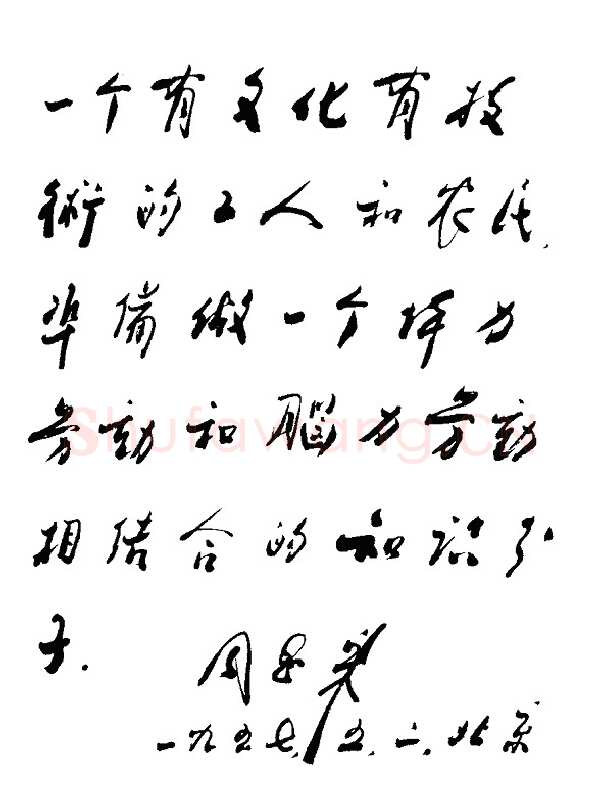 一个有文化有技
術的工人和农民,
準備做一个体力
劳動和腦力劳動
相结合的知识分
子.
周恩来
一九五七,五,二,北京